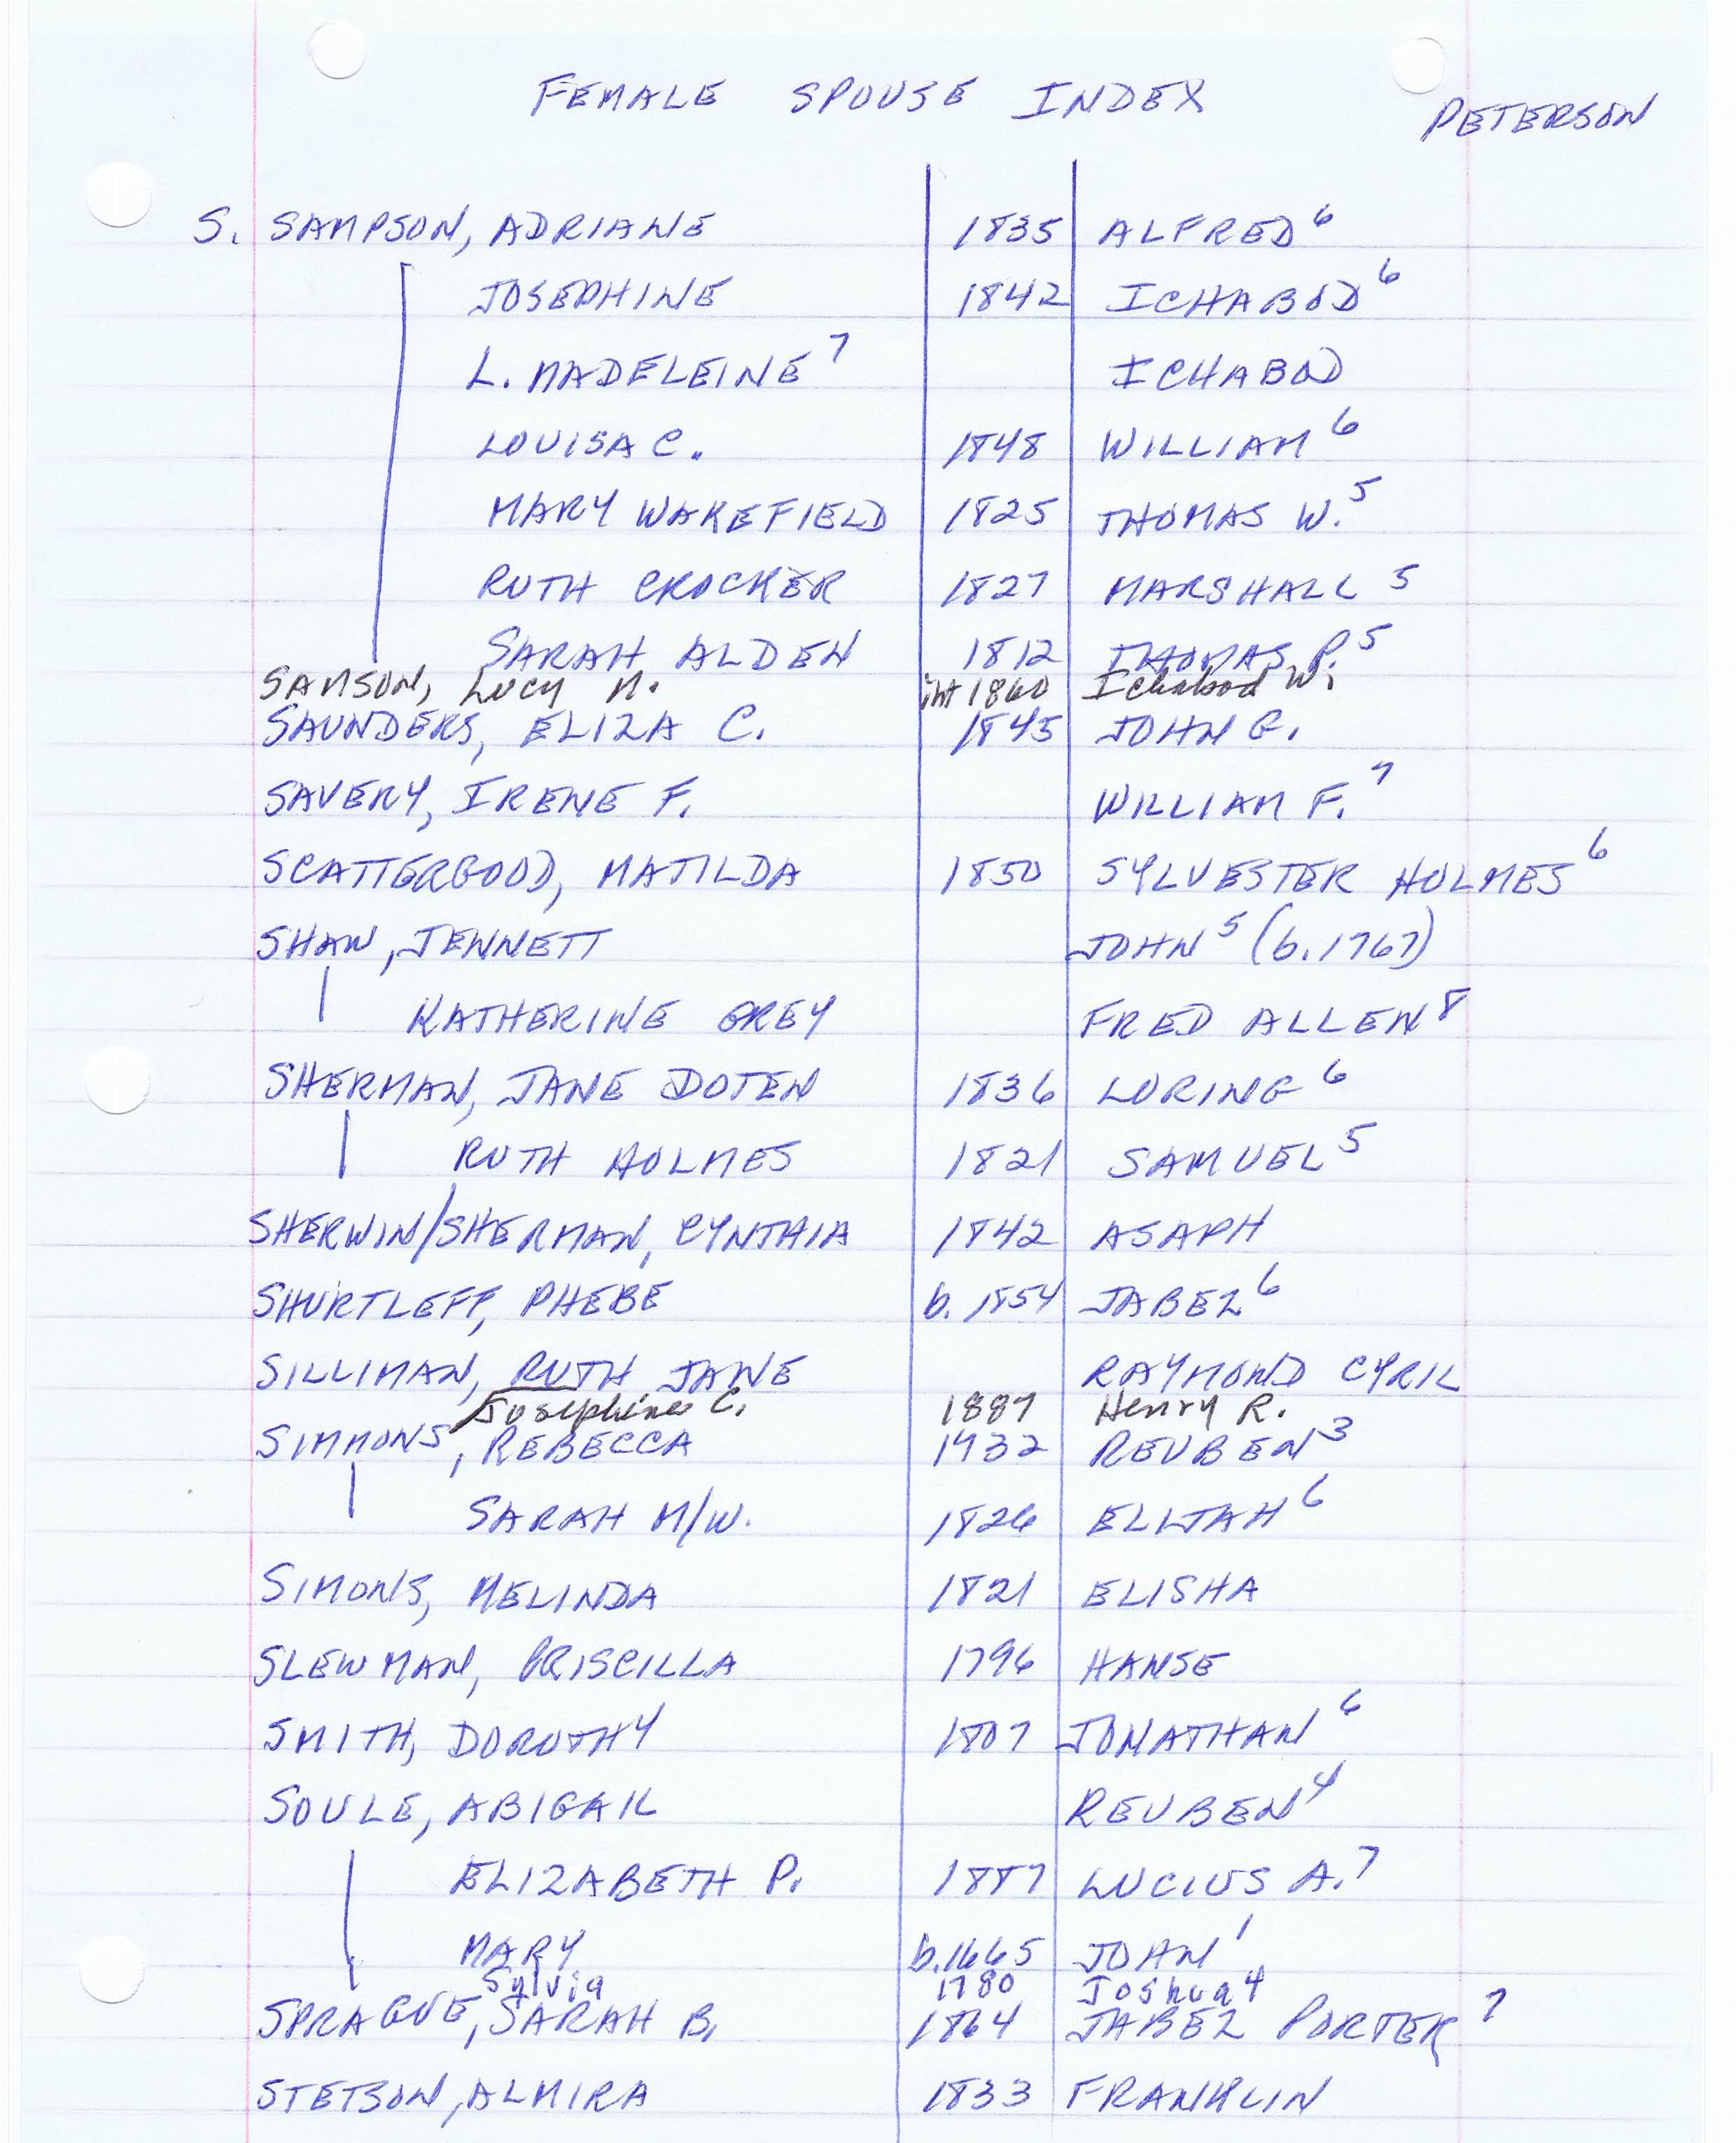 FEMALE SPOUSE INDEX PETERSON
S. SAMPSON, ADRIANE 1835 ALFRED 6
JOSEPHINE 1842 ICHABOD 6
L. MADELEINE 7 ICHABOD
LOUISA C. 1848 WILLIAM 6
MARY WAKEFIELD 1825 THOMAS W. 5
RUTH CROCKER 1827 MARSHALL 5
SARAH ALDEN 1812 THOMAS P. 5
SAMSON, Lucy M. int 1860 Ichabod W.
SAUNDERS, ELIZA C. 1845 JOHN G.
SAVERY, IRENE F. WILLIAM F. 7
SCATTERGOOD, MATILDA 1850 SYLVESTER HOLMES 6
SHAW, JENNETT JOHN 5 (b. 1767)
KATHERINE GREY FRED ALLEN 8
SHERMAN, JANE DOTEN 1836 LORING 6
RUTH HOLMES 1821 SAMUEL 5
SHERWIN/SHERMAN, CYNTHIA 1842 ASAPH
SHURTLEFF, PHEBE b. 1854 JABEZ 6
SILLIMAN, RUTH JANE RAYMOND CYRIL
Josephine C. 1887 Henry R.
SIMMONS, REBECCA 1732 REUBEN 3
SARAH M/W. 1826 ELIJAH 6
SIMONS, MELINDA 1821 ELISHA
SLEWMAN, PRISCILLA 1796 HANSE
SMITH, DOROTHY 1807 JONATHAN 6
SOULE, ABIGAIL REUBEN 4
ELIZABETH P. 1887 LUCIUS A. 7
MARY b. 1665 JOHN 1
Sylvia 1780 Joshua 4
SPRAGUE, SARAH B. 1864 JABEZ PORTER 7
STETSON, ALMIRA 1833 FRANKLIN